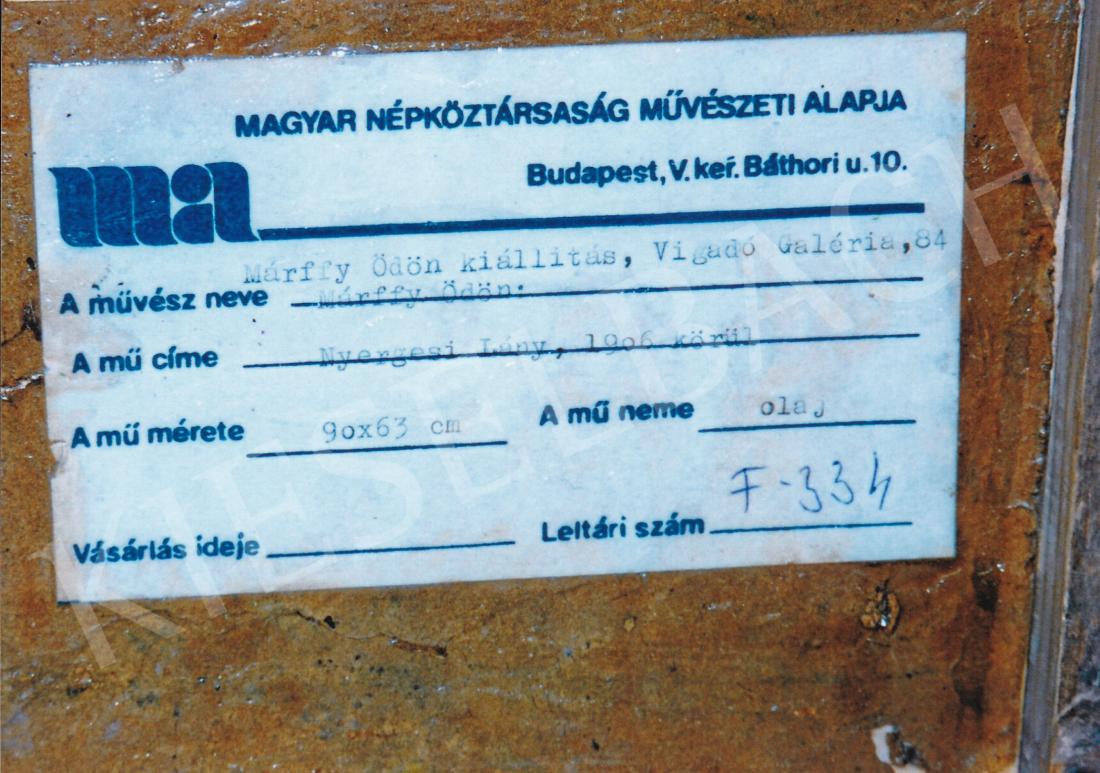 MAGYAR NÉPKÖZTÁRSASÁG MŰVÉSZETI ALAPJA
ma
Budapest, V. ker. Báthori u. 10.
Márffy Ödön kiállitás, Vigadó Galéria,84
A művész neve Márffy Ödön:
A mű címe Nyergesi Lány, 19o6 körül
A mű mérete 9ox63 cm A mű neme olaj
Vásárlás ideje Leltári szám F-334
KIESELBACH